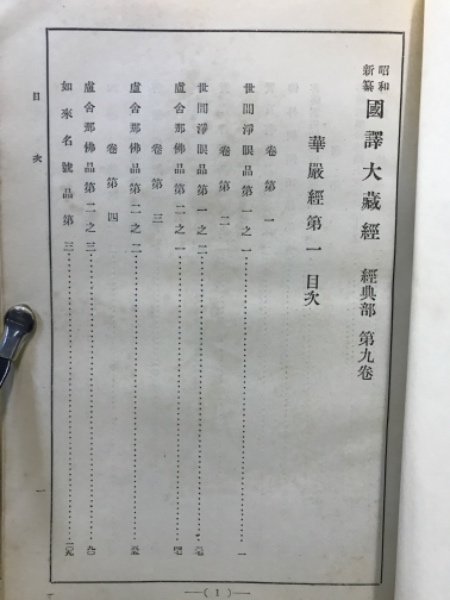 昭和新纂 國譯大藏經 經典部 第九卷
華嚴經第一 目次
卷第一
世間淨眼品第一之一……一
卷第二
世間淨眼品第一之二……
盧舍那佛品第二之一……
卷第三
盧舍那佛品第二之二……
卷第四
盧舍那佛品第二之三……
如來名號品第三……一〇九
目次
一
(1)